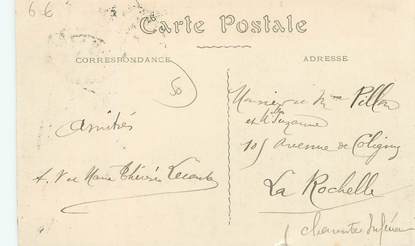 66
Carte Postale
CORRESPONDANCE
ADRESSE
50
Monsieur Mme Pillon
et Mlle Suzanne
Amitiés
105 Avenue de Coligny
Marie Thérèse
La Rochelle
Charente Infér